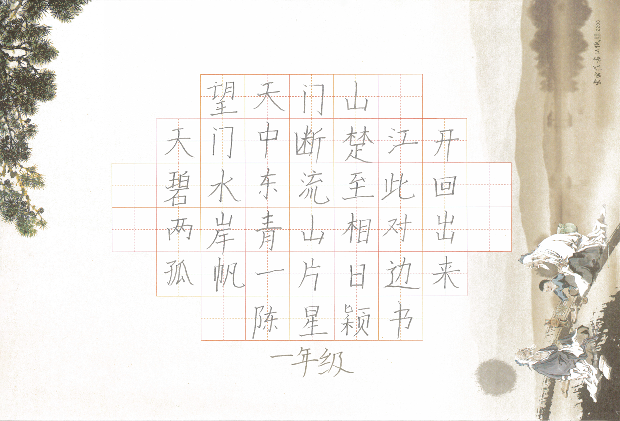 望天门山
天门中断楚江开
碧水东流至此回
两岸青山相对出
孤帆一片日边来
陈星颖书
一年级